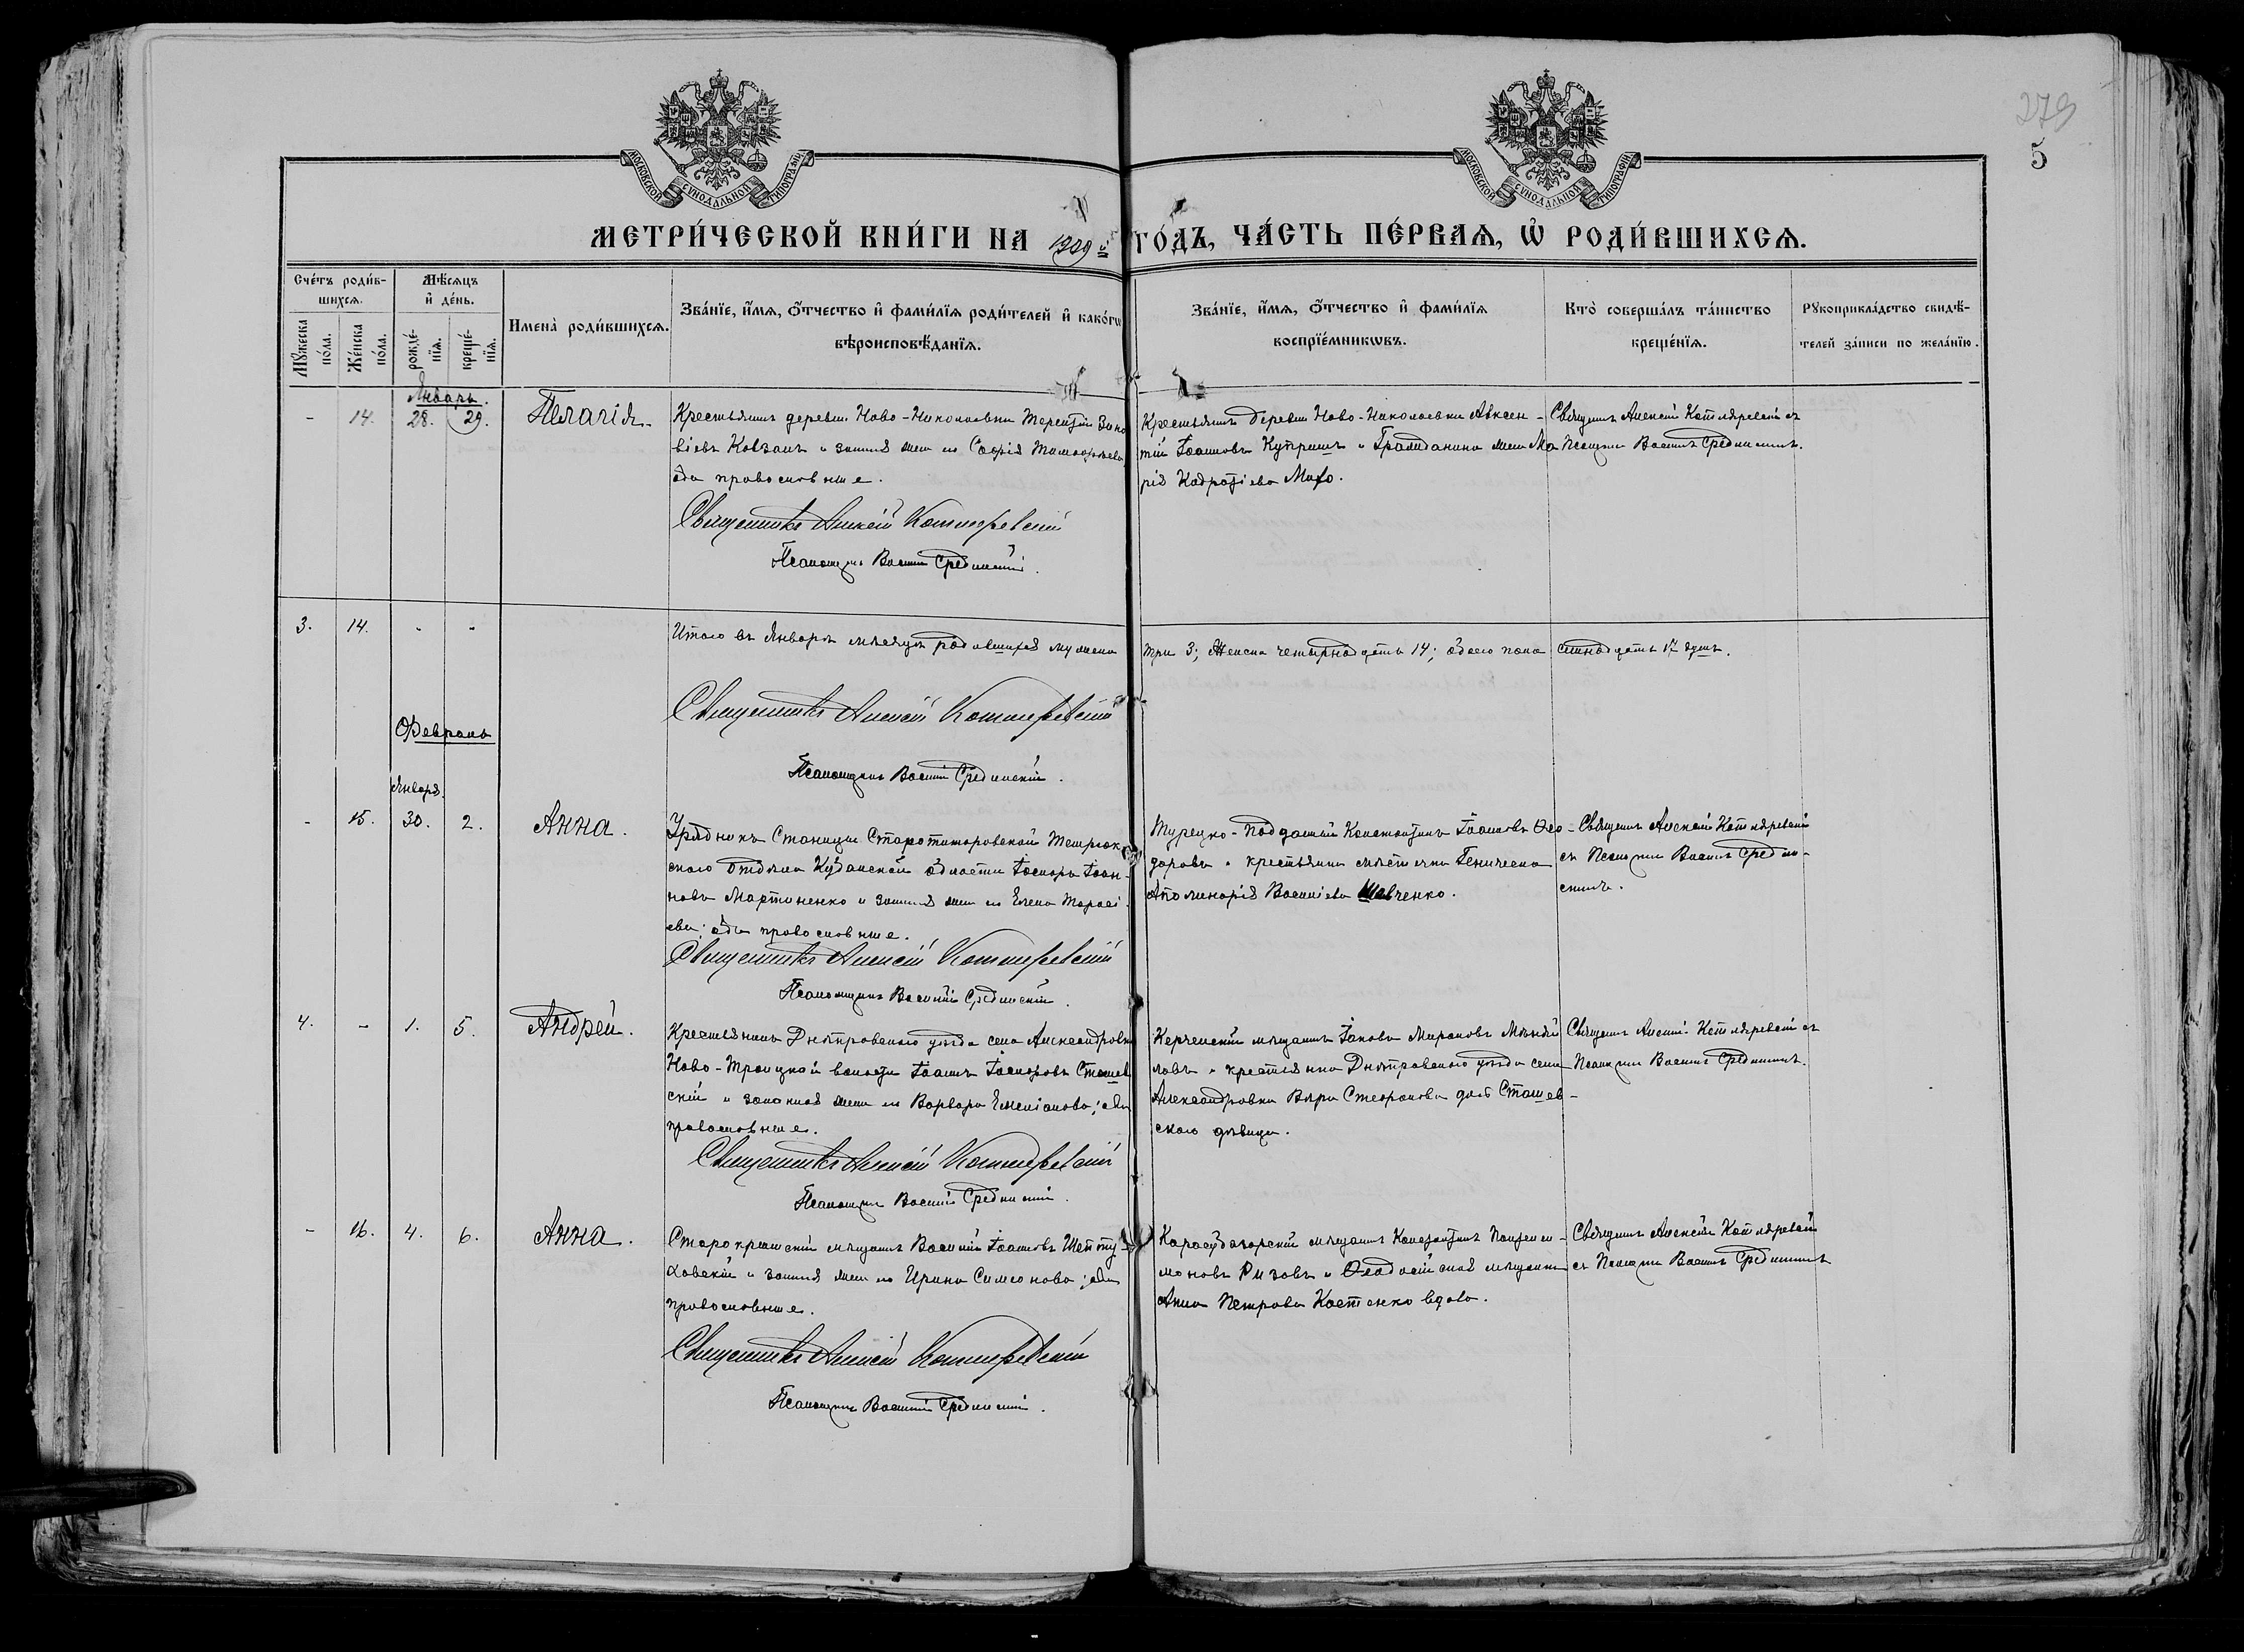 279
5
МОСКОВСКОЙ СѴНОДАЛЬНОЙ ТИПОГРАФІИ
МОСКОВСКОЙ СѴНОДАЛЬНОЙ ТИПОГРАФІИ
МЕТРИ́ЧЕСКОЙ КНИ́ГИ НА 1909й ГО́ДЪ, ЧА́СТЬ ПЕ́РВАѦ, Ѡ҆ РОДИ́ВШИХСѦ.
Сче́тъ роди́в-
шихсѧ.
Мꙋ́жеска
по́ла.
Же́нска
по́ла.
Мѣ́сѧцъ
и҆ де́нь.
рожде́-
нїѧ.
креще́-
нїѧ.
Имена̀ роди́вшихсѧ.
Зва́нїе, и҆́мѧ, ѻ҆́тчество и҆ фами́лїѧ роди́телей и҆ како́гѡ
вѣроисповѣ́данїѧ.
Зва́нїе, и҆́мѧ, ѻ҆́тчество и҆ фами́лїѧ
воспрїе́мникѡвъ.
Кто̀ соверша́лъ та́инство
креще́нїѧ.
Рꙋкоприкла́дство свидѣ́-
телей за́писи по жела́нїю.
Январь.
- 14. 28. 29. Пелагія.
Крестьянинъ деревни Ново-Николаевки Терентій Зино
віевъ Ковзанъ и законная жена его Софія Тимофѣева,
оба православные.
Священникъ Алексій Котляревскій
Псаломщикъ Василій Срединскій.
Крестьянинъ деревни Ново-Николаевки Авксен-
тій Іоанновъ Купришъ и Гражданина жена Ма
рія
Священникъ Алексій Котляревскій съ
Псаломщ. Василіемъ Срединскимъ.
3. 14. - -
Итого въ Январѣ мѣсяцѣ родившихся мужеска
три 3; Женска четырнадцать 14; обоего пола
семнадцать 17 душъ.
Священникъ Алексій Котляревскій
Псаломщикъ Василій Срединскій.
Февраль
Января.
- 15. 30. 2. Анна.
Урядникъ Станицы Старотитаровской Темрюк-
скаго Отдѣла Кубанской области Іосифъ Іоан-
новъ Мартиненко и законная жена его Елена Тарасі
ева; оба православные.
Священникъ Алексій Котляревскій
Псаломщикъ Василій Срединскій.
Турецко-подданный Константинъ Іоанновъ Ѳео-
доровъ и крестьянка мѣстечка Геническа
Аполинарія Василіева Шевченко.
Священникъ Алексій Котляревскій
съ Псаломщ. Василіемъ Средин-
скимъ.
4. - 1. 5. Андрей.
Крестьянинъ Днѣпровскаго уѣзда села Александровки
Ново-Троицкой волости Іоаннъ Іосифовъ Сташев
скій и законная жена его Варвара Емеліанова; оба
православные.
Священникъ Алексій Котляревскій
Псаломщикъ Василій Срединскій.
Керченскій мѣщанинъ Іаковъ Мироновъ
ловъ и крестьянка Днѣпровскаго уѣзда села
Александровки Вѣра Стефанова дочь Сташев-
скаго дѣвица.
Священникъ Алексій Котляревскій съ
Псаломщ. Василіемъ Срединскимъ.
- 16. 4. 6. Анна.
Старокрымскій мѣщанинъ Василій Іоанновъ Шепту-
ховскій и законная жена его Ирина Симеонова; оба
православные.
Священникъ Алексій Котляревскій
Псаломщикъ Василій Срединскій.
Карасубазарскій мѣщанинъ Константинъ Пантелеи-
моновъ Ризовъ и Ѳеодосійская мѣщанка
Анна Петрова Костенко вдова.
Священникъ Алексій Котляревскій
съ Псаломщ. Василіемъ Срединскимъ